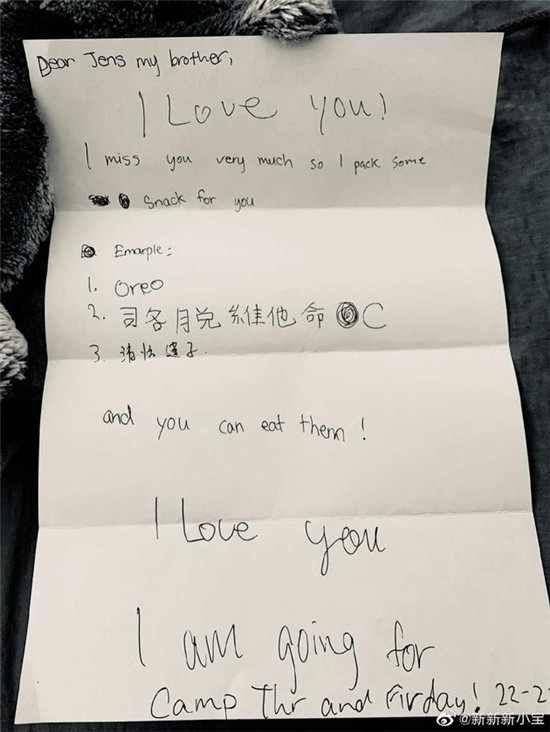 Dear Jens my brother,
I Love you!
I miss you very much so I pack some
Snack for you
Emarple:
1. Oreo
2. 司各月兑維他命 C
3. 清怡
and you can eat them!
I Love you
I am going for
Camp Thr and Firday! 22-2
@新新新小宝